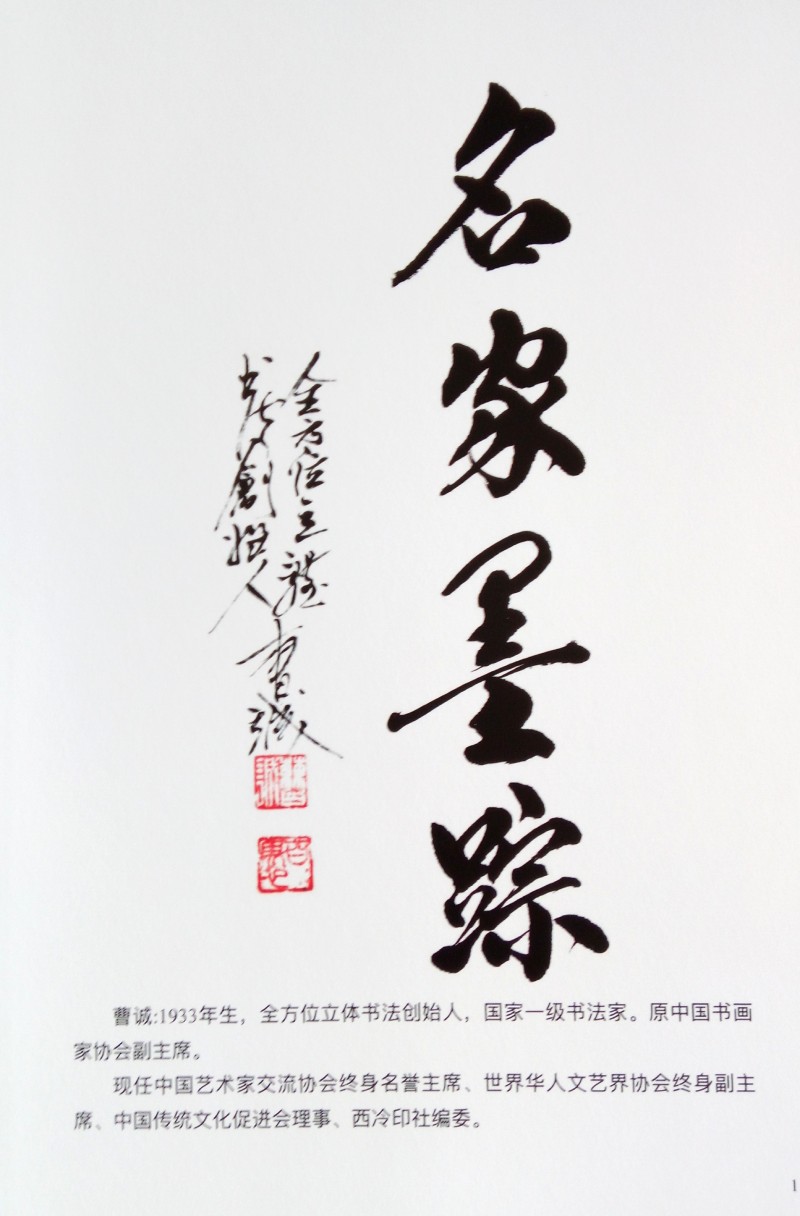 名家墨踪
全方位立體
書法創始人
曹诚
曹诚:1933年生，全方位立体书法创始人，国家一级书法家。原中国书画
家协会副主席。
现任中国艺术家交流协会终身名誉主席、世界华人文艺界协会终身副主
席、中国传统文化促进会理事、西冷印社编委。
1